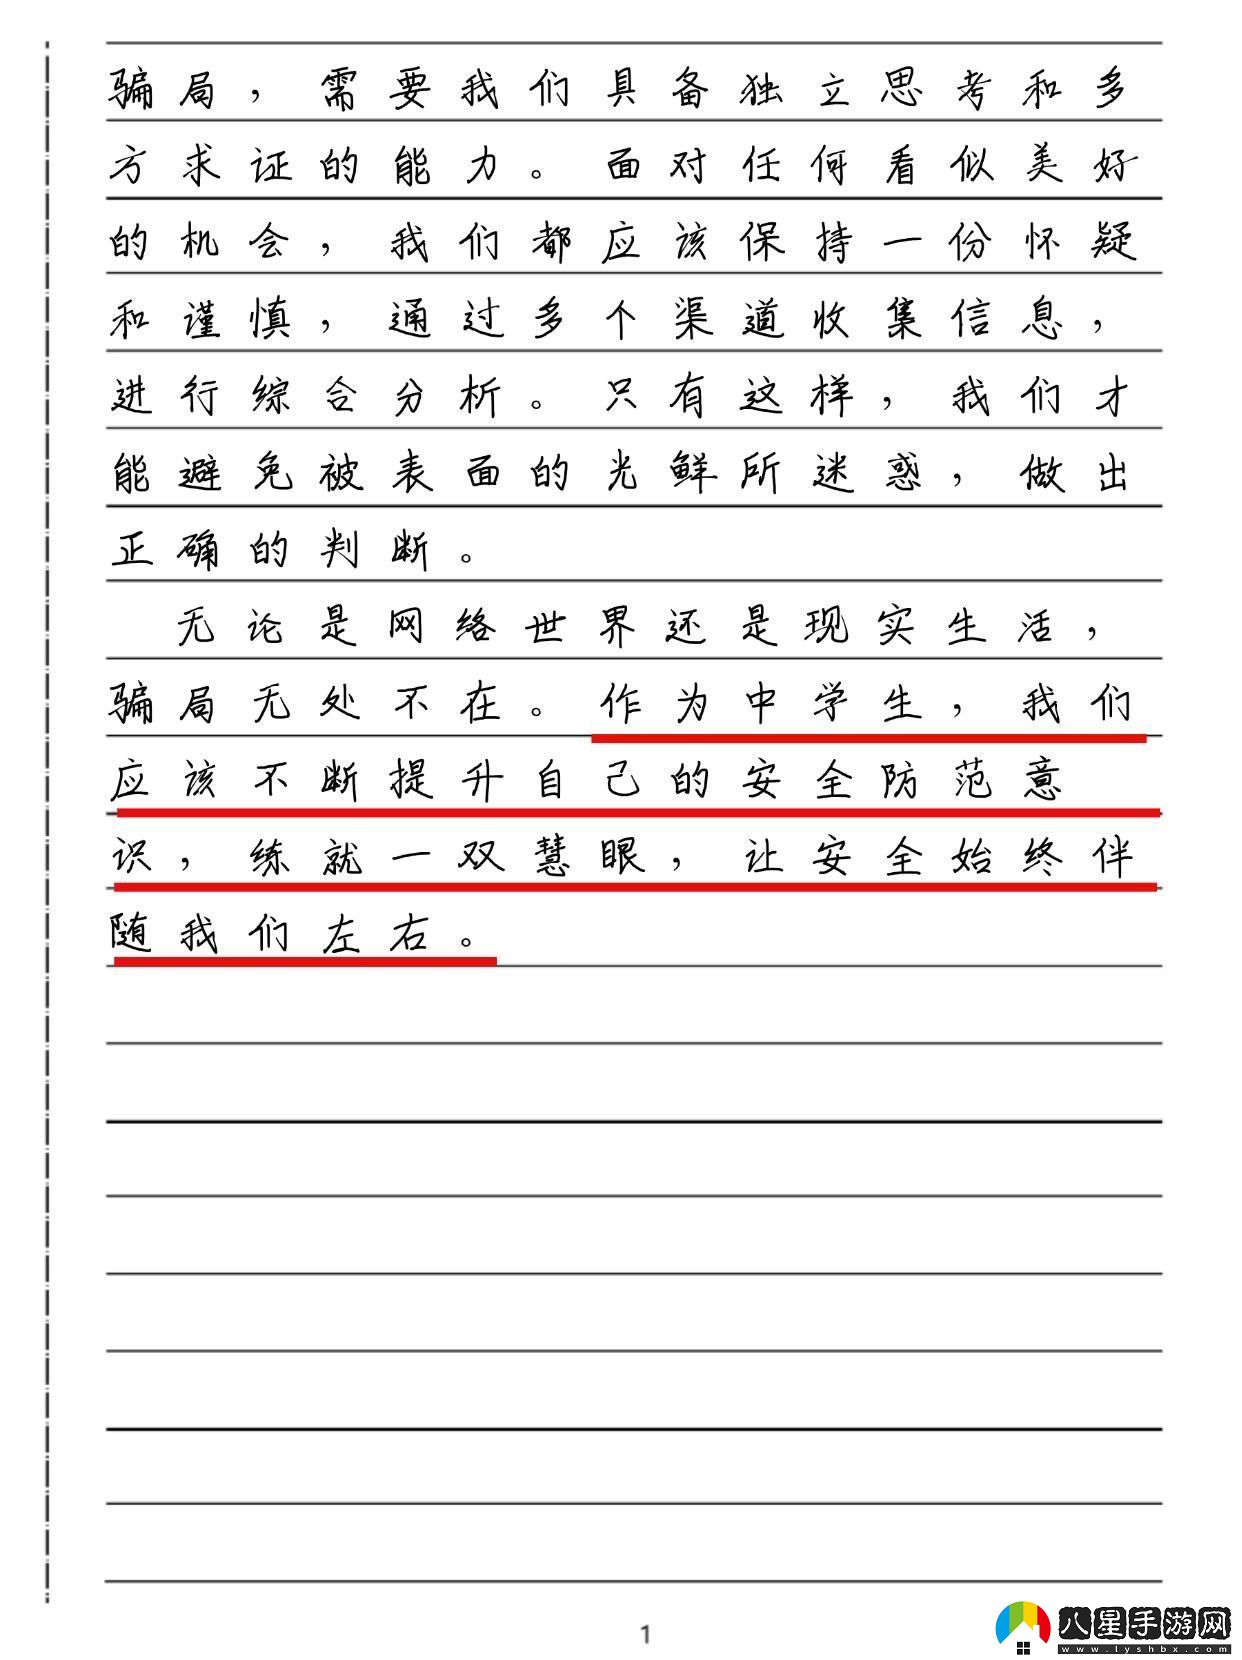 骗局，需要我们具备独立思考和多
方求证的能力。面对任何看似美好
的机会，我们都应该保持一份怀疑
和谨慎，通过多个渠道收集信息，
进行综合分析。只有这样，我们才
能避免被表面的光鲜所迷惑，做出
正确的判断。
无论是网络世界还是现实生活，
骗局无处不在。作为中学生，我们
应该不断提升自己的安全防范意
识，练就一双慧眼，让安全始终伴
随我们左右。
1
八星手游网
www.lyshbx.com